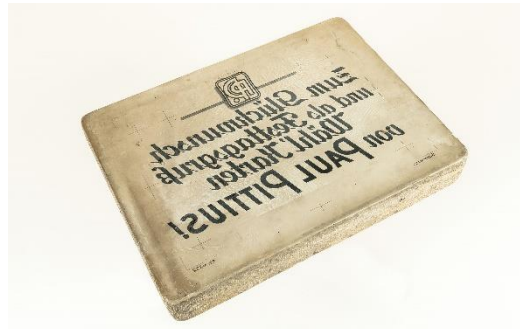 Zum Glückwunsch
und als Festtagsgruß
Wähl' Karten
von PAUL PITTIUS!